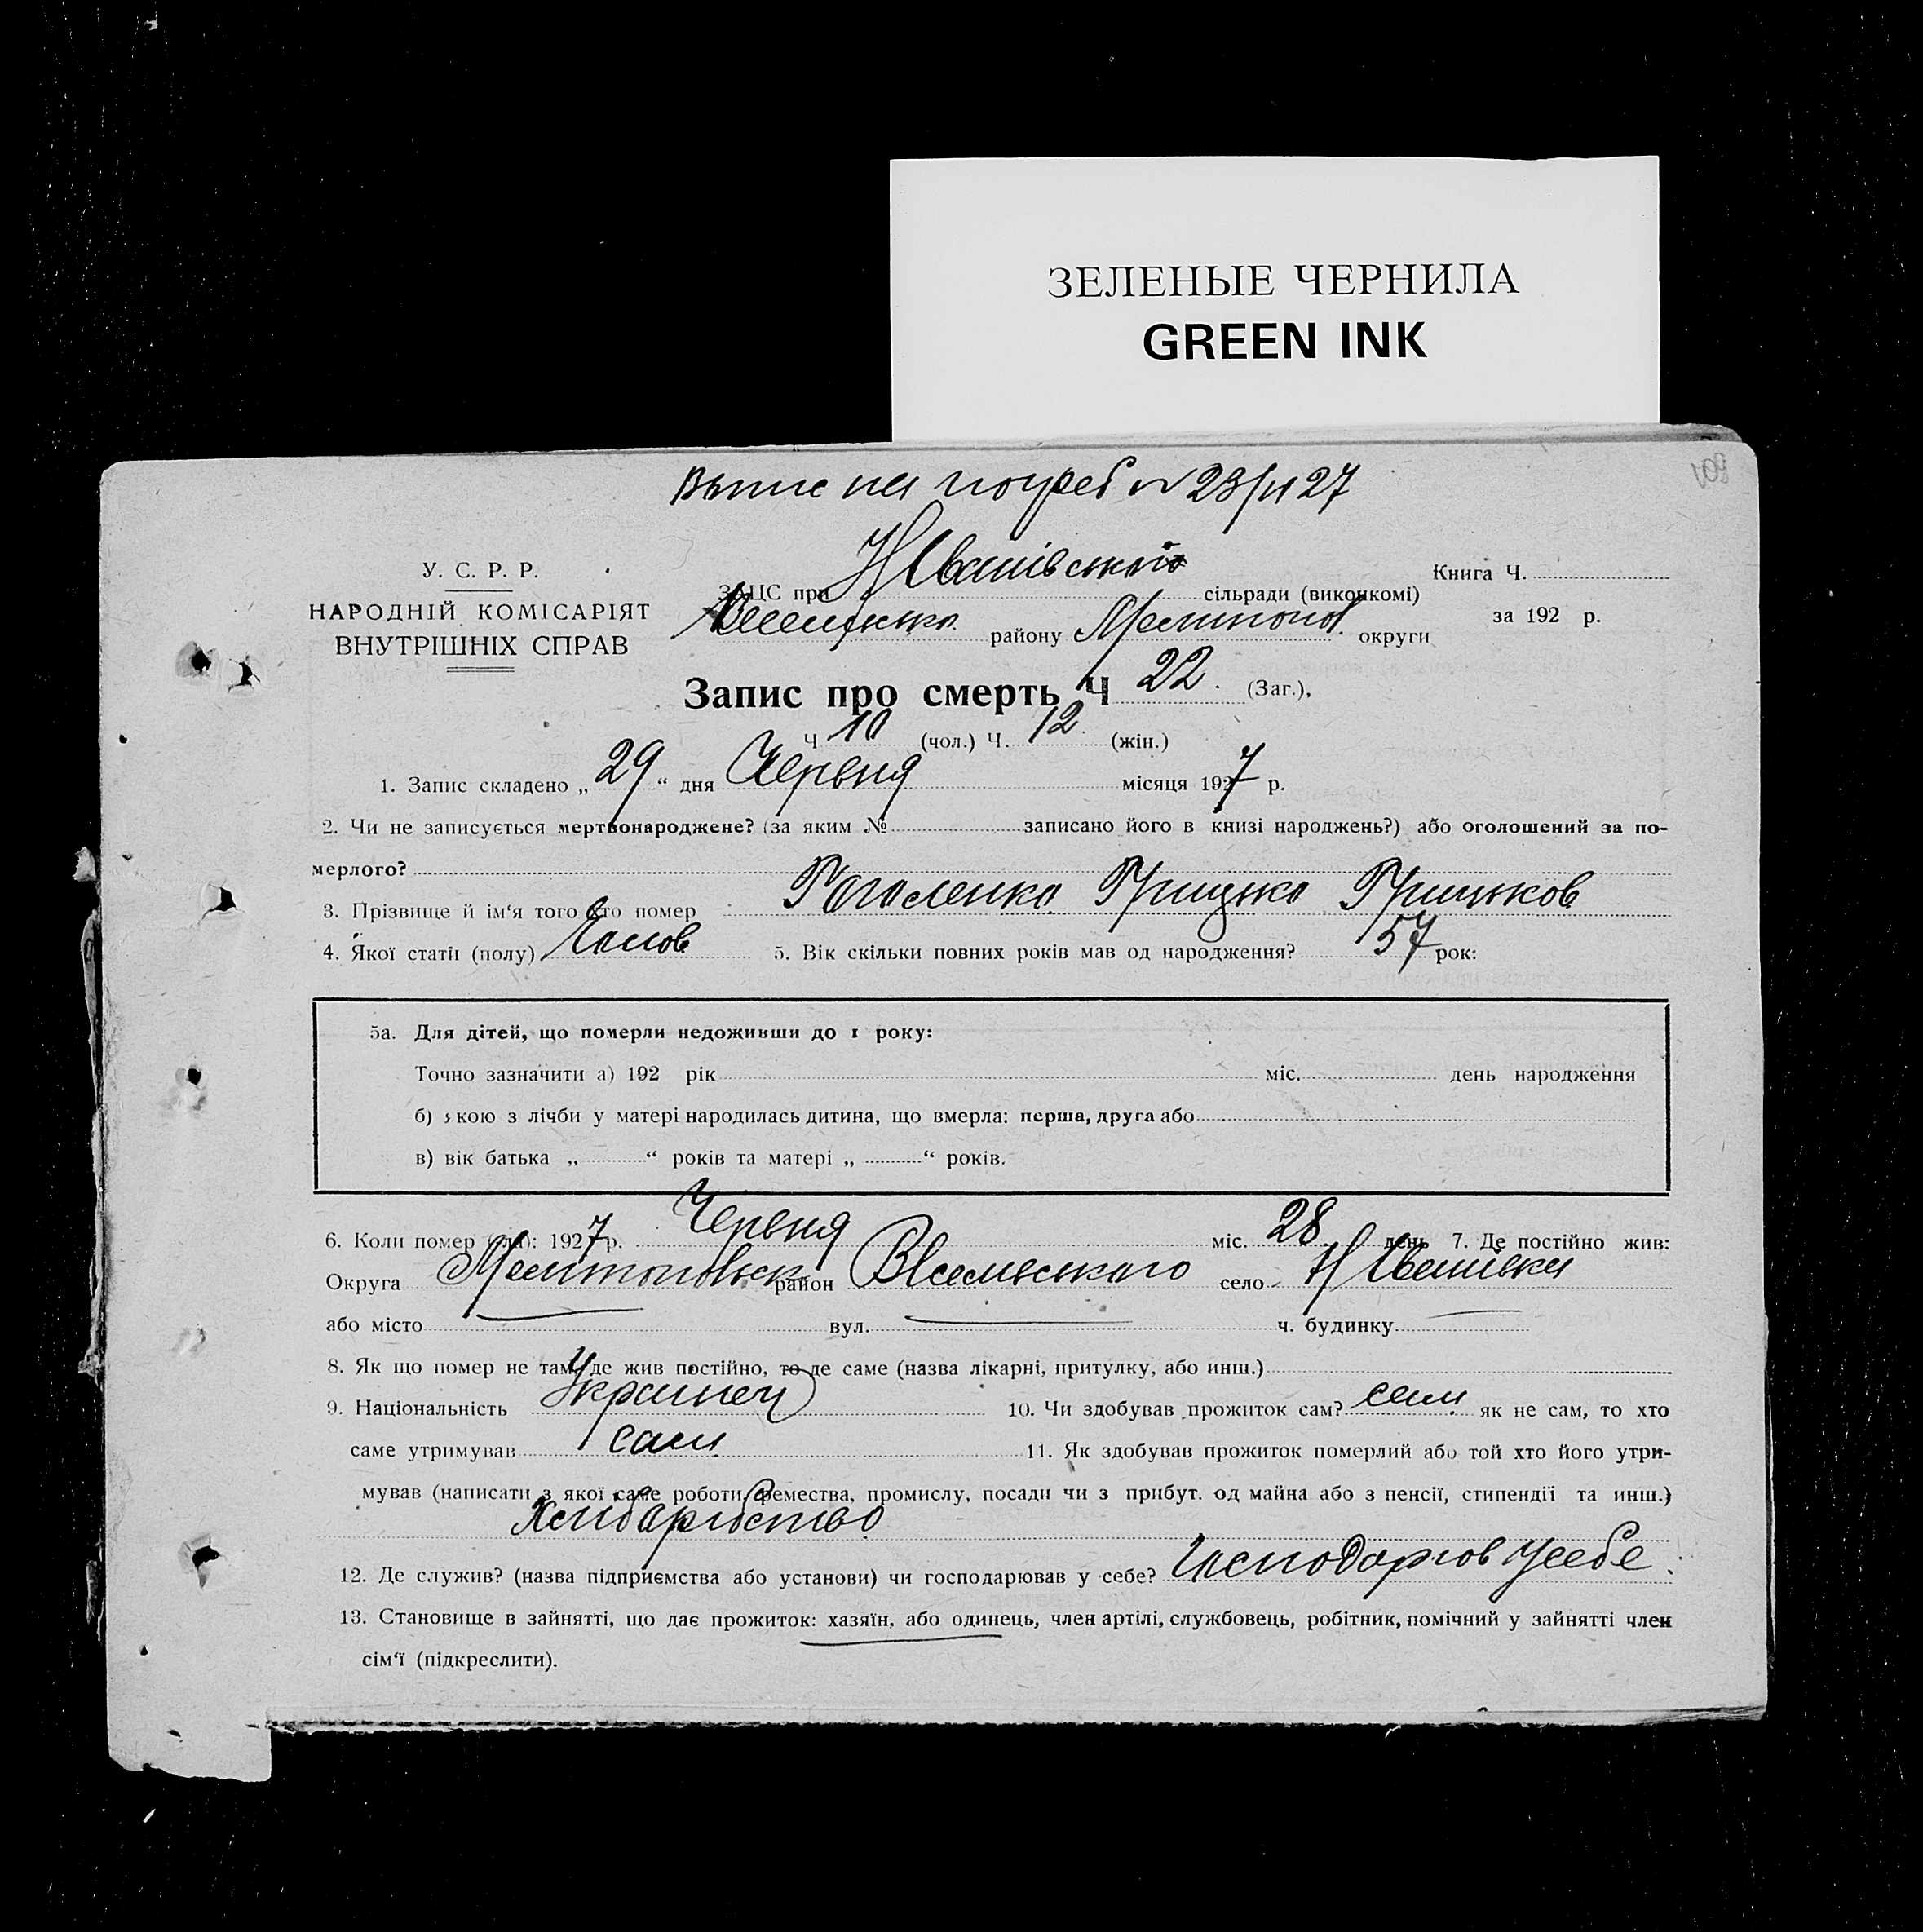 ЗЕЛЕНЫЕ ЧЕРНИЛА
GREEN INK
23/ 27
У. С. Р. Р.
НАРОДНІЙ КОМІСАРІЯТ
ВНУТРІШНІХ СПРАВ
ЗАЦС при Н Іванівський сільради (виконкомі)
району Мелитопол. округи
Книга Ч.
за 192 р.
Запис про смерть Ч 22. (Заг.),
Ч 10 (чол.) Ч. 12. (жін.)
1. Запис складено „ 29 “ дня Червня місяця 1927 р.
2. Чи не записується мертвонароджене? (за яким № записано його в книзі народжень?) або оголошений за по-
мерлого?
3. Прізвище й ім‘я того хто помер Роголенко Грицько Грицьков
4. Якої статі (полу) Чолов 5. Вік скільки повних років мав од народження? 57 рок:
5а. Для дітей, що померли недоживши до 1 року:
Точно зазначити а) 192 рік міс. день народження
б) якою з лічби у матері народилась дитина, що вмерла: перша, друга або
в) вік батька „ “ років та матері „ “ років.
6. Коли помер (ла): 1927 р. Червня міс. 28 день 7. Де постійно жив:
Округа Мелитопольск район село Н Іванівка
або місто вул. ч. будинку
8. Як що помер не там, де жив постійно, то де саме (назва лікарні, притулку, або инш.)
9. Національність Украинец 10. Чи здобував прожиток сам? сам як не сам, то хто
саме утримував сам 11. Як здобував прожиток померлий або той хто його утри-
мував (написати з якої саме роботи, ремества, промислу, посади чи з прибут. од майна або з пенсії, стипендії та инш.)
Хлиборобство
12. Де служив? (назва підприємства або установи) чи господарював у себе? Господарюв усебе.
13. Становище в зайнятті, що дає прожиток: хазяїн, або одинець, член артілі, службовець, робітник, помічний у зайнятті член
сім‘ї (підкреслити).